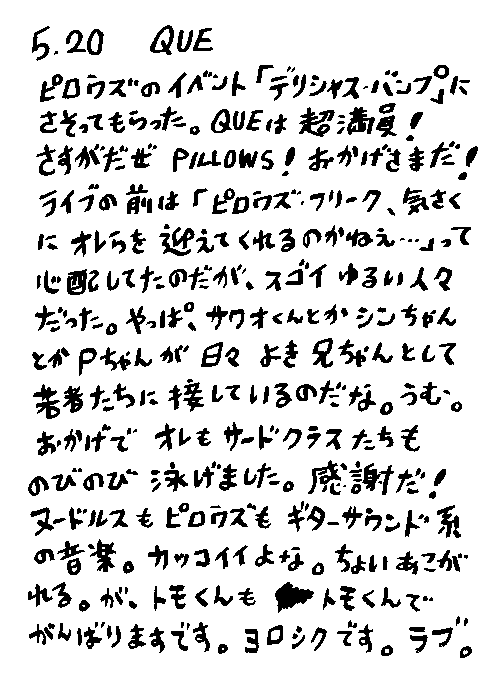 5.20 QUE
ピロウズのイベント「デリシャス・バンプ」に
さそってもらった。QUEは超満員!
さすがだぜ PILLOWS! おかげさまだ!
ライブの前は「ピロウズ・フリーク、気さく
に オレらを 迎えてくれるのかねえ…」って
心配してたのだが、スゴイ ゆるい人々
だった。やっぱ、サワオくんとか シンちゃん
とか Pちゃんが 日々 よき兄ちゃんとして
若者たちに 接しているのだな。うむ。
おかげで オレも サードクラスたちも
のびのび 泳げました。感謝だ!
ヌードルスも ピロウズも ギターサウンド系
の音楽。カッコイイよな。ちょい あこが
れる。が、トモくんも トモくんで
がんばりますです。ヨロシクです。ラブ。